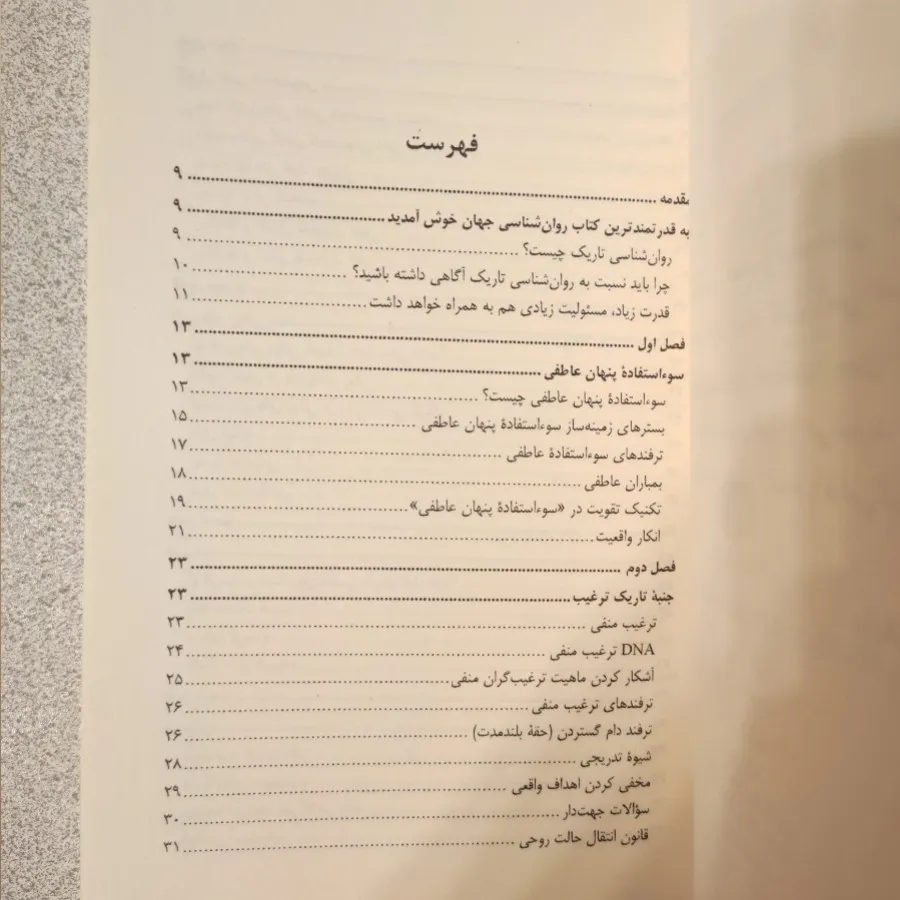 فهرست
مقدمه ........ ۹
به قدرتمندترین کتاب روان‌شناسی جهان خوش آمدید ........ ۹
روان‌شناسی تاریک چیست؟ ........ ۹
چرا باید نسبت به روان‌شناسی تاریک آگاهی داشته باشید؟ ........ ۱۰
قدرت زیاد، مسئولیت زیادی هم به همراه خواهد داشت ........ ۱۱
فصل اول ........ ۱۳
سوءاستفادهٔ پنهان عاطفی ........ ۱۳
سوءاستفادهٔ پنهان عاطفی چیست؟ ........ ۱۳
بسترهای زمینه‌ساز سوءاستفادهٔ پنهان عاطفی ........ ۱۵
ترفندهای سوءاستفادهٔ عاطفی ........ ۱۷
بمباران عاطفی ........ ۱۸
تکنیک تقویت در «سوءاستفادهٔ پنهان عاطفی» ........ ۱۹
انکار واقعیت ........ ۲۱
فصل دوم ........ ۲۳
جنبهٔ تاریک ترغیب ........ ۲۳
ترغیب منفی ........ ۲۳
DNA ترغیب منفی ........ ۲۴
آشکار کردن ماهیت ترغیب‌گران منفی ........ ۲۵
ترفندهای ترغیب منفی ........ ۲۶
ترفند دام گستردن (حقهٔ بلندمدت) ........ ۲۶
شیوهٔ تدریجی ........ ۲۸
مخفی کردن اهداف واقعی ........ ۲۹
سؤالات جهت‌دار ........ ۳۰
قانون انتقال حالت روحی ........ ۳۱